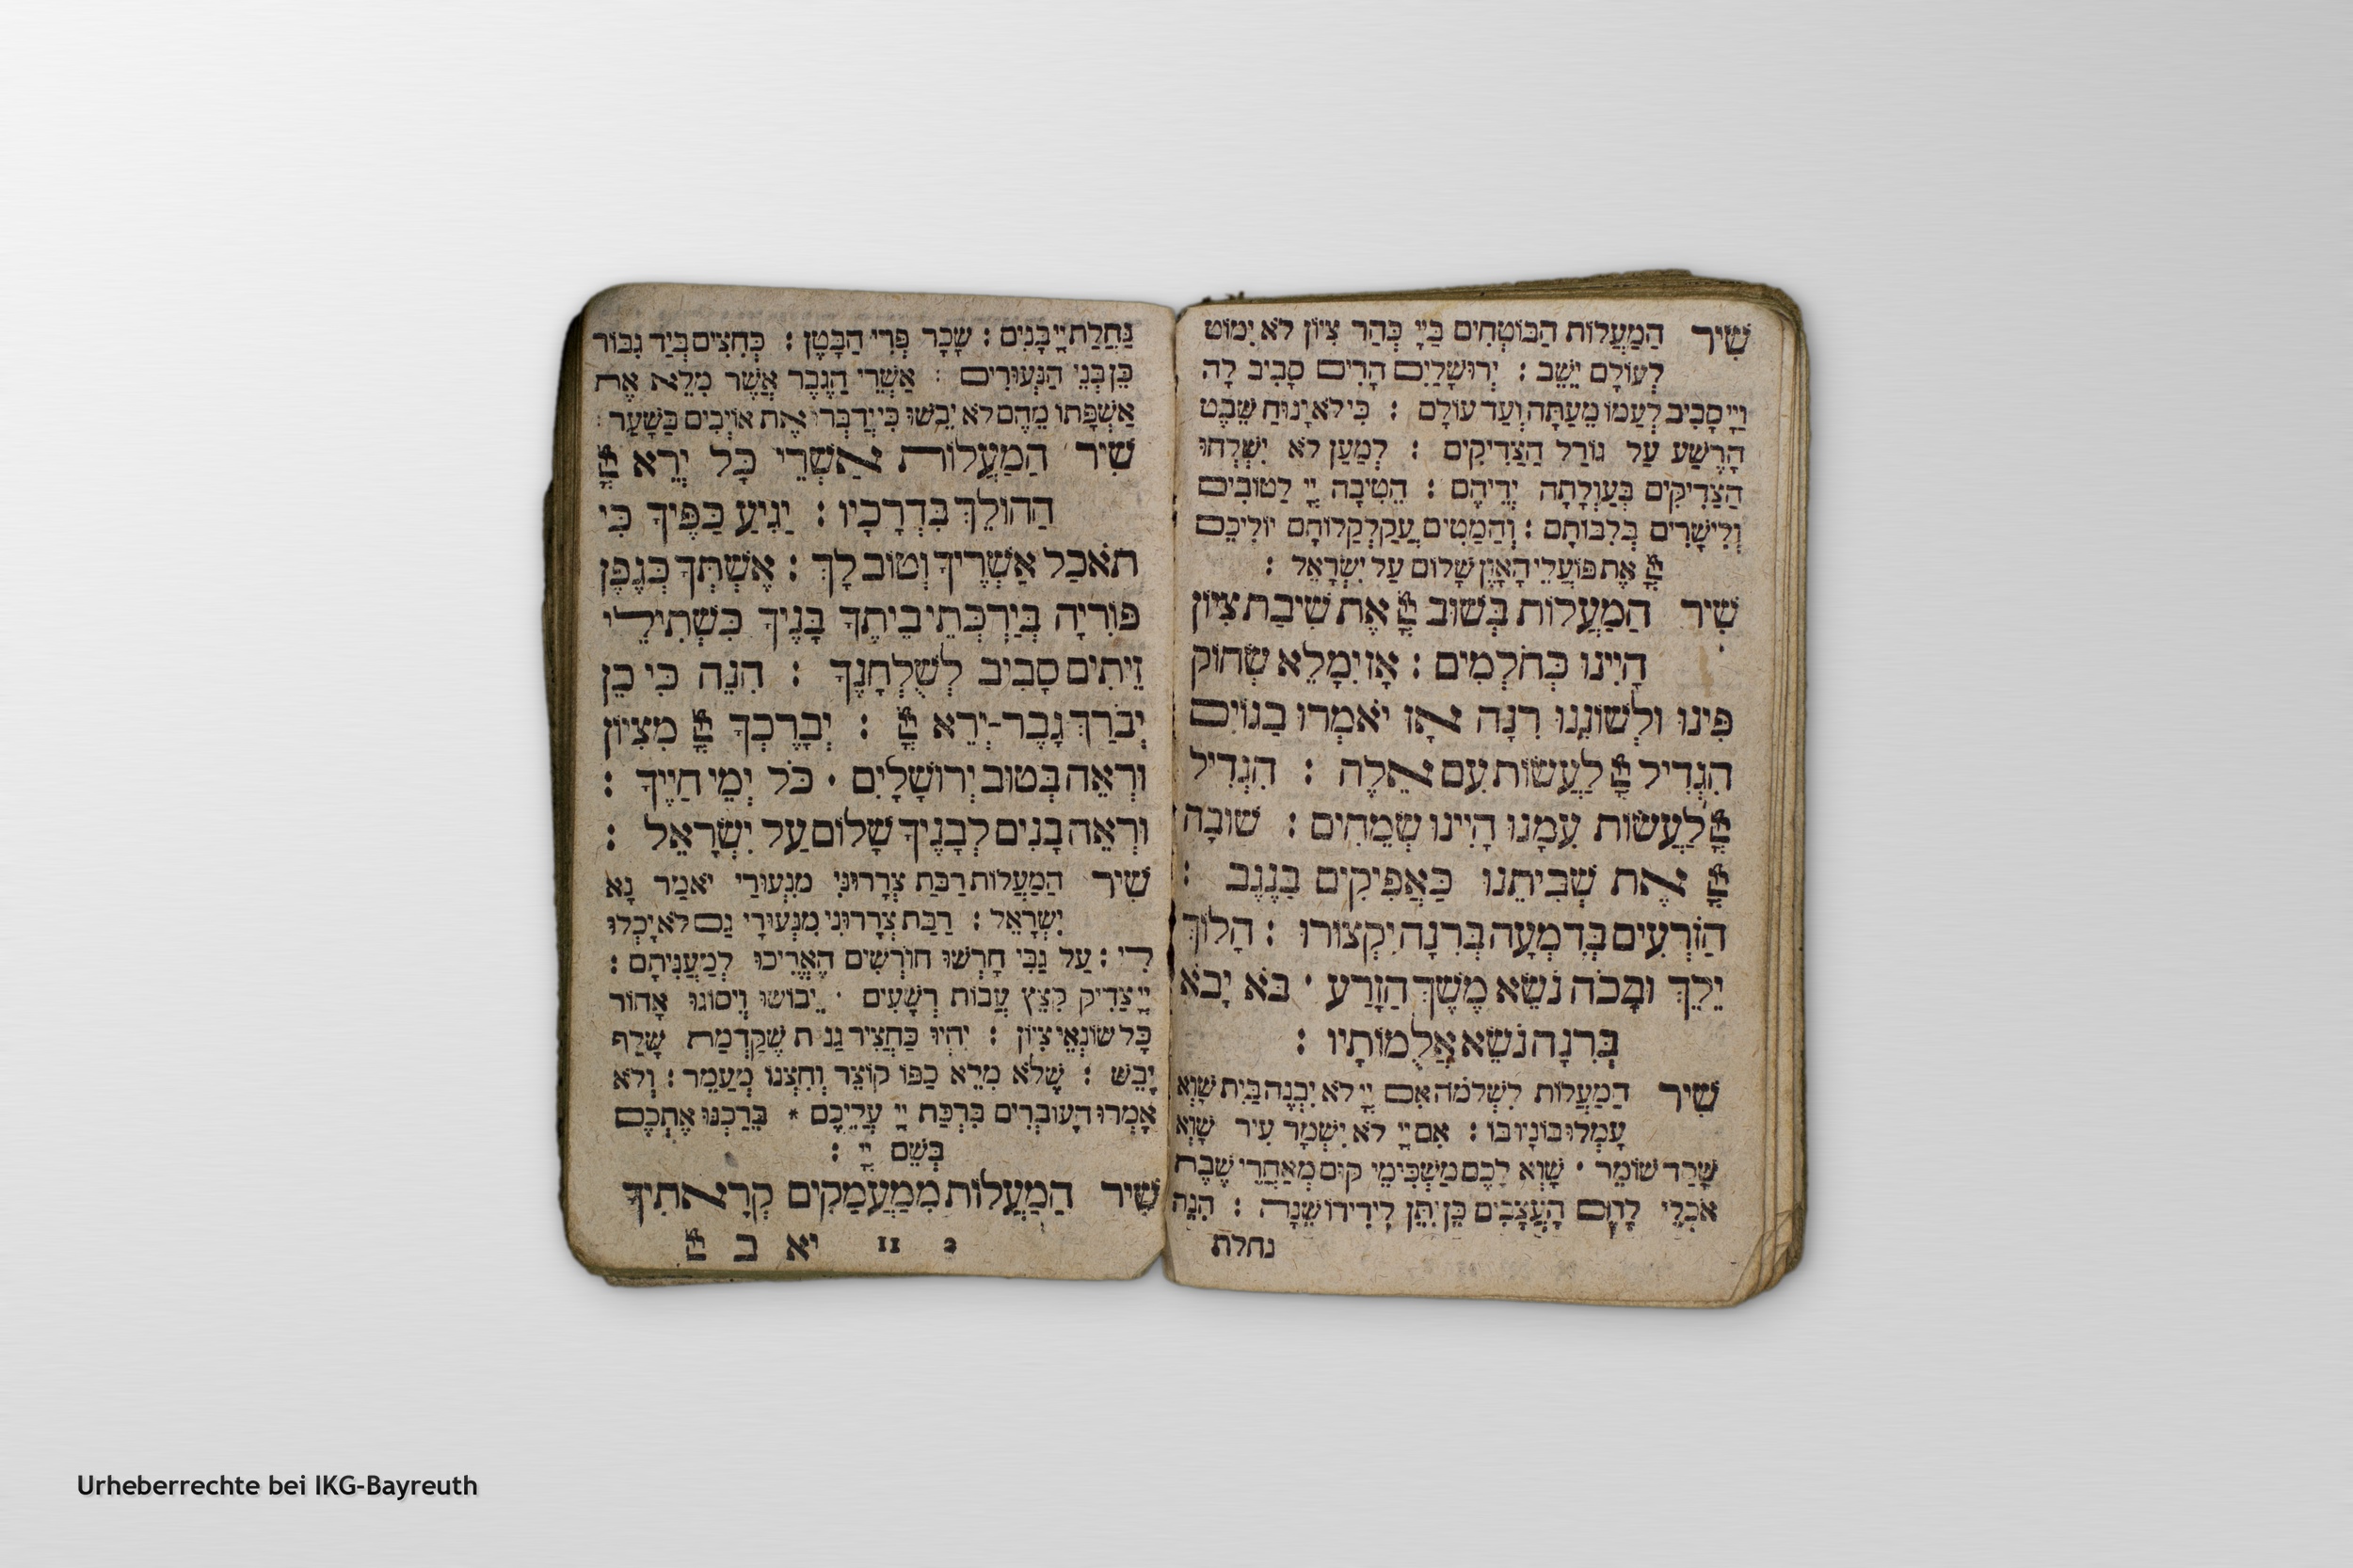 שִׁיר הַמַּעֲלוֹת הַבּוֹטְחִים בַּיְיָ כְּהַר צִיּוֹן לֹא יִמּוֹט
לְעוֹלָם יֵשֵׁב : יְרוּשָׁלַיִם הָרִים סָבִיב לָהּ
וַיְיָ סָבִיב לְעַמּוֹ מֵעַתָּה וְעַד עוֹלָם : כִּי לֹא יָנוּחַ שֵׁבֶט
הָרֶשַׁע עַל גּוֹרַל הַצַּדִּיקִים : לְמַעַן לֹא יִשְׁלְחוּ
הַצַּדִּיקִים בְּעַוְלָתָה יְדֵיהֶם : הֵטִיבָה יְיָ לַטּוֹבִים
וְלִישָׁרִים בְּלִבּוֹתָם : וְהַמַּטִּים עֲקַלְקַלּוֹתָם יוֹלִיכֵם
יְיָ אֶת פּוֹעֲלֵי הָאָוֶן שָׁלוֹם עַל יִשְׂרָאֵל :
שִׁיר הַמַּעֲלוֹת בְּשׁוּב יְיָ אֶת שִׁיבַת צִיּוֹן
הָיִינוּ כְּחֹלְמִים : אָז יִמָּלֵא שְׂחוֹק
פִּינוּ וּלְשׁוֹנֵנוּ רִנָּה אָז יֹאמְרוּ בַגּוֹיִם
הִגְדִּיל יְיָ לַעֲשׂוֹת עִם אֵלֶּה : הִגְדִּיל
יְיָ לַעֲשׂוֹת עִמָּנוּ הָיִינוּ שְׂמֵחִים : שׁוּבָה
יְיָ אֶת שְׁבִיתֵנוּ כַּאֲפִיקִים בַּנֶּגֶב :
הַזּוֹרְעִים בְּדִמְעָה בְּרִנָּה יִקְצוֹרוּ : הָלוֹךְ
יֵלֵךְ וּבָכֹה נֹשֵׂא מֶשֶׁךְ הַזָּרַע · בֹּא יָבֹא
בְרִנָּה נֹשֵׂא אֲלֻמּוֹתָיו :
שִׁיר הַמַּעֲלוֹת לִשְׁלֹמֹה אִם יְיָ לֹא יִבְנֶה בַיִת שָׁוְא
עָמְלוּ בוֹנָיו בּוֹ : אִם יְיָ לֹא יִשְׁמָר עִיר שָׁוְא
שָׁקַד שׁוֹמֵר · שָׁוְא לָכֶם מַשְׁכִּימֵי קוּם מְאַחֲרֵי שֶׁבֶת
אֹכְלֵי לֶחֶם הָעֲצָבִים כֵּן יִתֵּן לִידִידוֹ שֵׁנָה : הִנֵּה
נחלת
נַחֲלַת יְיָ בָּנִים : שָׂכָר פְּרִי הַבָּטֶן : כְּחִצִּים בְּיַד גִּבּוֹר
כֵּן בְּנֵי הַנְּעוּרִים : אַשְׁרֵי הַגֶּבֶר אֲשֶׁר מִלֵּא אֶת
אַשְׁפָּתוֹ מֵהֶם לֹא יֵבֹשׁוּ כִּי יְדַבְּרוּ אֶת אוֹיְבִים בַּשָּׁעַר :
שִׁיר הַמַּעֲלוֹת אַשְׁרֵי כָּל יְרֵא יְיָ
הַהוֹלֵךְ בִּדְרָכָיו : יְגִיעַ כַּפֶּיךָ כִּי
תֹאכַל אַשְׁרֶיךָ וְטוֹב לָךְ : אֶשְׁתְּךָ כְּגֶפֶן
פּוֹרִיָּה בְּיַרְכְּתֵי בֵיתֶךָ בָּנֶיךָ כִּשְׁתִילֵי
זֵיתִים סָבִיב לְשֻׁלְחָנֶךָ : הִנֵּה כִּי כֵן
יְבֹרַךְ גָּבֶר-יְרֵא יְיָ : יְבָרֶכְךָ יְיָ מִצִּיּוֹן
וּרְאֵה בְּטוּב יְרוּשָׁלָיִם · כֹּל יְמֵי חַיֶּיךָ :
וּרְאֵה בָנִים לְבָנֶיךָ שָׁלוֹם עַל יִשְׂרָאֵל :
שִׁיר הַמַּעֲלוֹת רַבַּת צְרָרוּנִי מִנְּעוּרַי יֹאמַר נָא
יִשְׂרָאֵל : רַבַּת צְרָרוּנִי מִנְּעוּרָי גַּם לֹא יָכְלוּ
לִי : עַל גַּבִּי חָרְשׁוּ חוֹרְשִׁים הֶאֱרִיכוּ לְמַעֲנִיתָם :
יְיָ צַדִּיק קִצֵּץ עֲבוֹת רְשָׁעִים · יֵבוֹשׁוּ וְיִסּוֹגוּ אָחוֹר
כָּל שׂוֹנְאֵי צִיּוֹן : יִהְיוּ כַּחֲצִיר גַּגּוֹת שֶׁקַּדְמַת שָׁלַף
יָבֵשׁ : שֶׁלֹּא מִלֵּא כַפּוֹ קוֹצֵר וְחִצְנוֹ מְעַמֵּר : וְלֹא
אָמְרוּ הָעוֹבְרִים בִּרְכַּת יְיָ עֲלֵיכֶם * בֵּרַכְנוּ אֶתְכֶם
בְּשֵׁם יְיָ :
שִׁיר הַמַּעֲלוֹת מִמַּעֲמַקִּים קְרָאתִיךָ
2 11 יא ב יְיָ
Urheberrechte bei IKG-Bayreuth